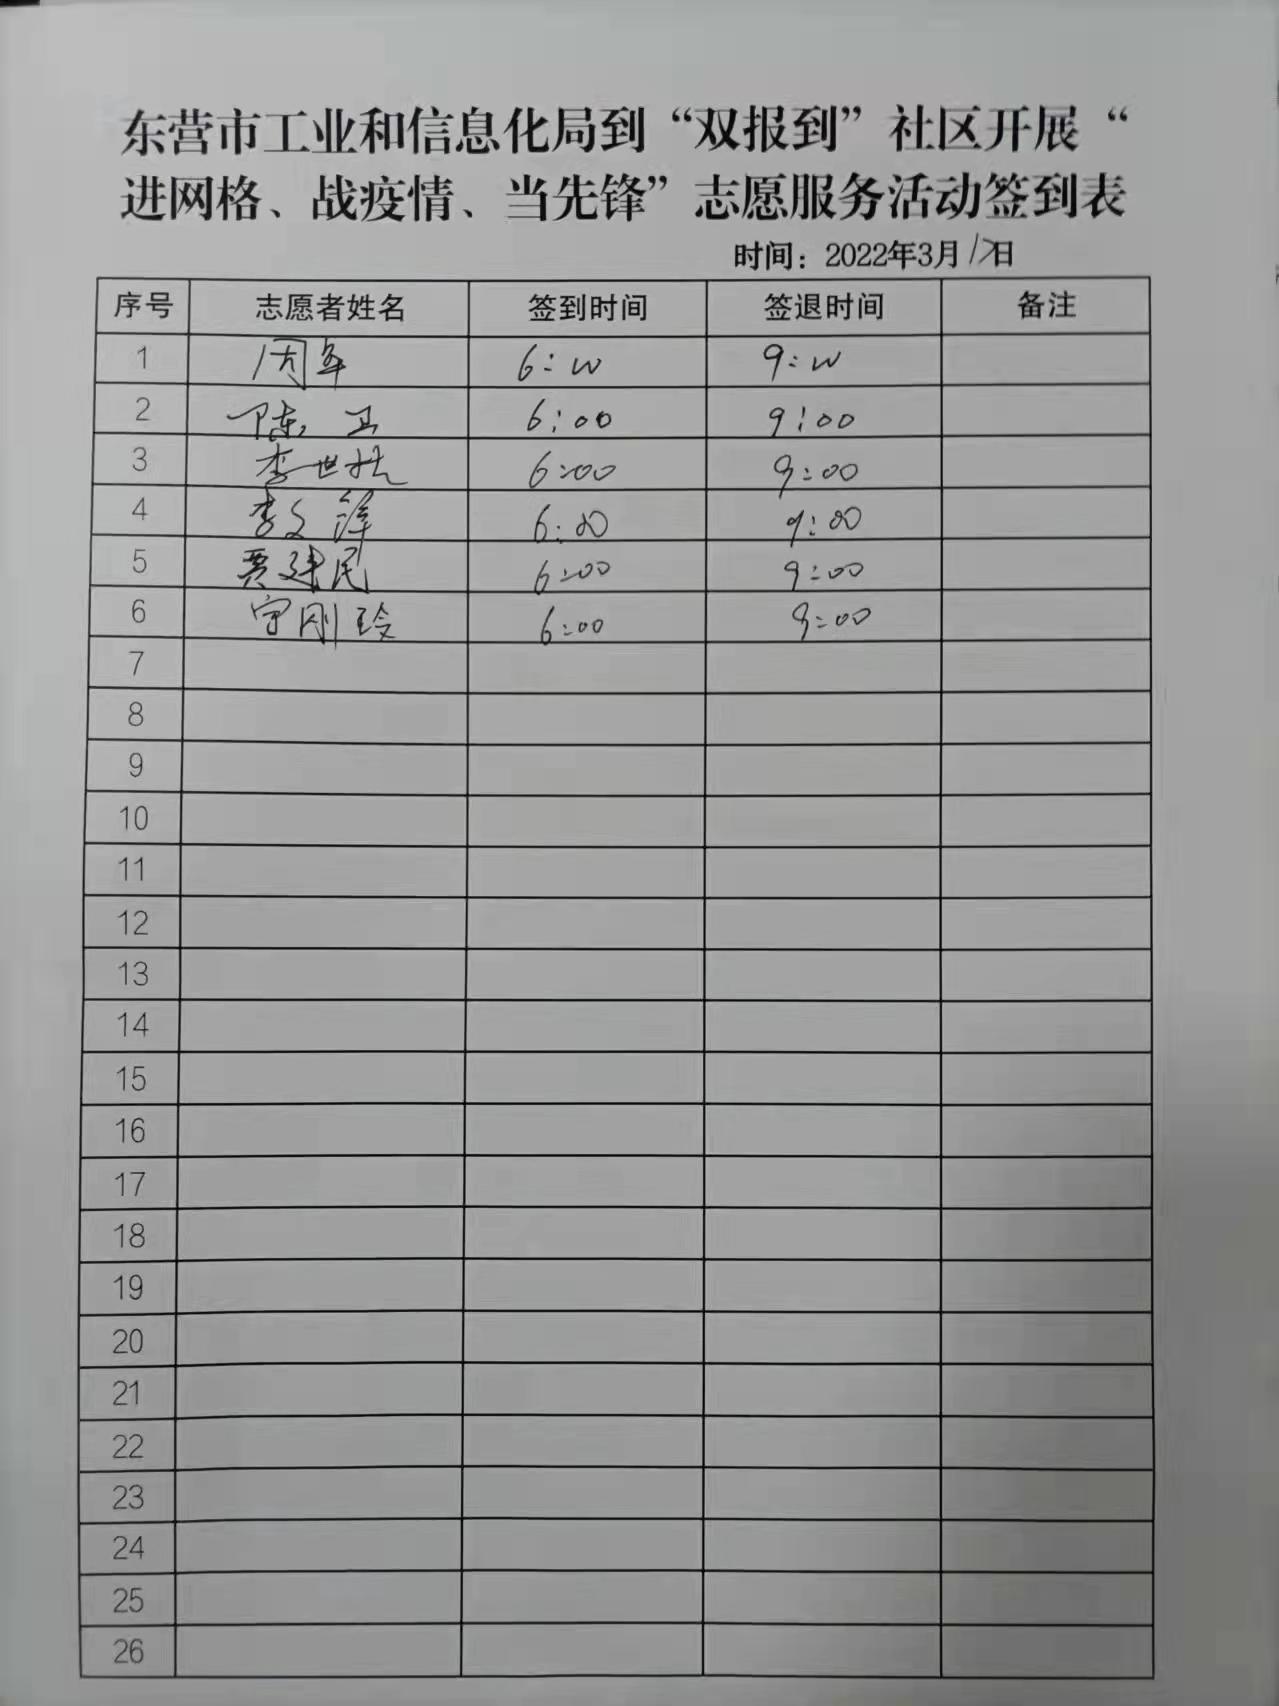 东营市工业和信息化局到“双报到”社区开展“
进网格、战疫情、当先锋”志愿服务活动签到表
时间：2022年3月17日
序号 志愿者姓名 签到时间 签退时间 备注
1 周军 6:00 9:00
2 陈卫 6:00 9:00
3 李世 6:00 9:00
4 李文萍 6:00 9:00
5 贾建民 6:00 9:00
6 刚玲 6:00 9:00
7
8
9
10
11
12
13
14
15
16
17
18
19
20
21
22
23
24
25
26